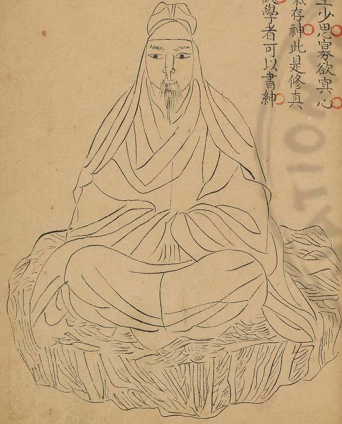 少思寡欲冥心
氣存神此是修真
訣學者可以書紳